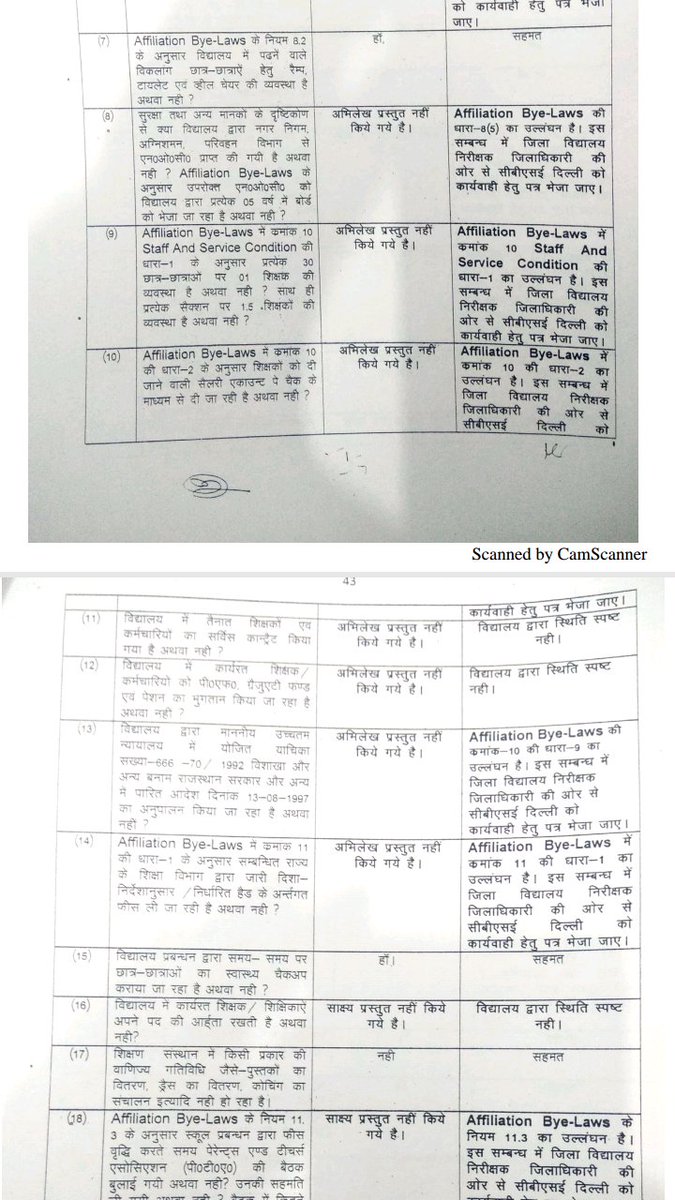 को कार्यवाही हेतु पत्र भेजा
जाए।
(7) Affiliation Bye-Laws के नियम 8.2
के अनुसार विद्यालय में पढनें वाले
विकलाग छात्र-छात्राऐं हेतु रैम्प,
टायलेट एवं व्हील चेयर की व्यवस्था है
अथवा नही ?
हॉं,
सहमत
(8) सुरक्षा तथा अन्य मानको के दृष्टिकोण
से क्या विद्यालय द्वारा नगर निगम,
अग्निशमन, परिवहन विभाग से
एन०ओ०सी० प्राप्त की गयी है अथवा
नही ? Affiliation Bye-Laws के
अनुसार उपरोक्त एन०ओ०सी० को
विद्यालय द्वारा प्रत्येक 05 वर्ष में बोर्ड
को भेजा जा रहा है अथवा नही ?
अभिलेख प्रस्तुत नहीं
किये गये है।
Affiliation Bye-Laws की
धारा-8(5) का उल्लंघन है। इस
सम्बन्ध में जिला विद्यालय
निरीक्षक जिलाधिकारी की
ओर से सीबीएसई दिल्ली को
कार्यवाही हेतु पत्र भेजा जाए।
(9) Affiliation Bye-Laws में कमांक 10
Staff And Service Condition की
धारा-1 के अनुसार प्रत्येक 30
छात्र-छात्राओं पर 01 शिक्षक की
व्यवस्था है अथवा नही ? साथ ही
प्रत्येक सैक्शन पर 1.5 शिक्षकों की
व्यवस्था है अथवा नही ?
अभिलेख प्रस्तुत नहीं
किये गये है।
Affiliation Bye-Laws में
कमांक 10 Staff And
Service Condition की
धारा-1 का उल्लंघन है। इस
सम्बन्ध में जिला विद्यालय
निरीक्षक जिलाधिकारी की
ओर से सीबीएसई दिल्ली को
कार्यवाही हेतु पत्र भेजा जाए।
(10) Affiliation Bye-Laws में कमांक 10
की धारा-2 के अनुसार शिक्षकों को दी
जाने वाली सैलरी एकाउन्ट पे चैक के
माध्यम से दी जा रही है अथवा नही ?
अभिलेख प्रस्तुत नहीं
किये गये है।
Affiliation Bye-Laws में
कमांक 10 की धारा-2 का
उल्लंघन है। इस सम्बन्ध में
जिला विद्यालय निरीक्षक
जिलाधिकारी की ओर से
सीबीएसई दिल्ली को
Scanned by CamScanner
43
कार्यवाही हेतु पत्र भेजा जाए।
(11) विद्यालय में तैनात शिक्षकों एवं
कर्मचारियों का सर्विस कान्ट्रैट किया
गया है अथवा नही ?
अभिलेख प्रस्तुत नहीं
किये गये है।
विद्यालय द्वारा स्थिति स्पष्ट
नही।
(12) विद्यालय में कार्यरत शिक्षक/
कर्मचारियों को पी०एफ०, ग्रैजुएटी फण्ड
एंव पेशन का भुगतान किया जा रहा है
अथवा नही ?
अभिलेख प्रस्तुत नहीं
किये गये है।
विद्यालय द्वारा स्थिति स्पष्ट
नही।
(13) विद्यालय द्वारा माननीय उच्चतम
न्यायालय में योजित याचिका
सख्या-666 -70/ 1992 विशाखा और
अन्य बनाम राजस्थान सरकार और अन्य
में पारित आदेश दिनाक 13-08-1997
का अनुपालन किया जा रहा है अथवा
नही ?
अभिलेख प्रस्तुत नहीं
किये गये है।
Affiliation Bye-Laws की
कमांक-10 की धारा-9 का
उल्लंघन है। इस सम्बन्ध में
जिला विद्यालय निरीक्षक
जिलाधिकारी की ओर से
सीबीएसई दिल्ली को
कार्यवाही हेतु पत्र भेजा जाए।
(14) Affiliation Bye-Laws में कमाक 11
की धारा-1 के अनुसार सम्बन्धित राज्य
के शिक्षा विभाग द्वारा जारी दिशा-
निर्देशानुसार /निर्धारित हैड के अर्न्तगत
फीस ली जा रही है अथवा नही ?
अभिलेख प्रस्तुत नहीं
किये गये है।
Affiliation Bye-Laws में
कमांक 11 की धारा-1 का
उल्लंघन है। इस सम्बन्ध में
जिला विद्यालय निरीक्षक
जिलाधिकारी की ओर से
सीबीएसई दिल्ली को
कार्यवाही हेतु पत्र भेजा जाए।
(15) विद्यालय प्रबन्धन द्वारा समय- समय पर
छात्र-छात्राओं का स्वास्थ्य चैकअप
कराया जा रहा है अथवा नही ?
हॉं।
सहमत
(16) विद्यालय में कार्यरत शिक्षक/ शिक्षिकाऐं
अपने पद की आर्हता रखती है अथवा
नही?
साक्ष्य प्रस्तुत नहीं किये
गये है।
विद्यालय द्वारा स्थिति स्पष्ट
नही।
(17) शिक्षण संस्थान में किसी प्रकार की
वाणिज्य गतिविधि जैसे-पुस्तकों का
वितरण, ड्रैस का वितरण, कोचिंग का
संचालन इत्यादि नही हो रहा है।
नही
सहमत
(18) Affiliation Bye-Laws के नियम 11.
3 के अनुसार स्कूल प्रबन्धन द्वारा फीस
वृद्धि करते समय पेरेन्ट्स एण्ड टीचर्स
एसोसिएशन (पी०टी०ए०) की बैठक
बुलाई गयी अथवा नही ? उनकी सहमति
साक्ष्य प्रस्तुत नहीं किये
गये है।
Affiliation Bye-Laws के
नियम 11.3 का उल्लंघन है।
इस सम्बन्ध में जिला विद्यालय
निरीक्षक जिलाधिकारी की
ओर से सीबीएसई दिल्ली को